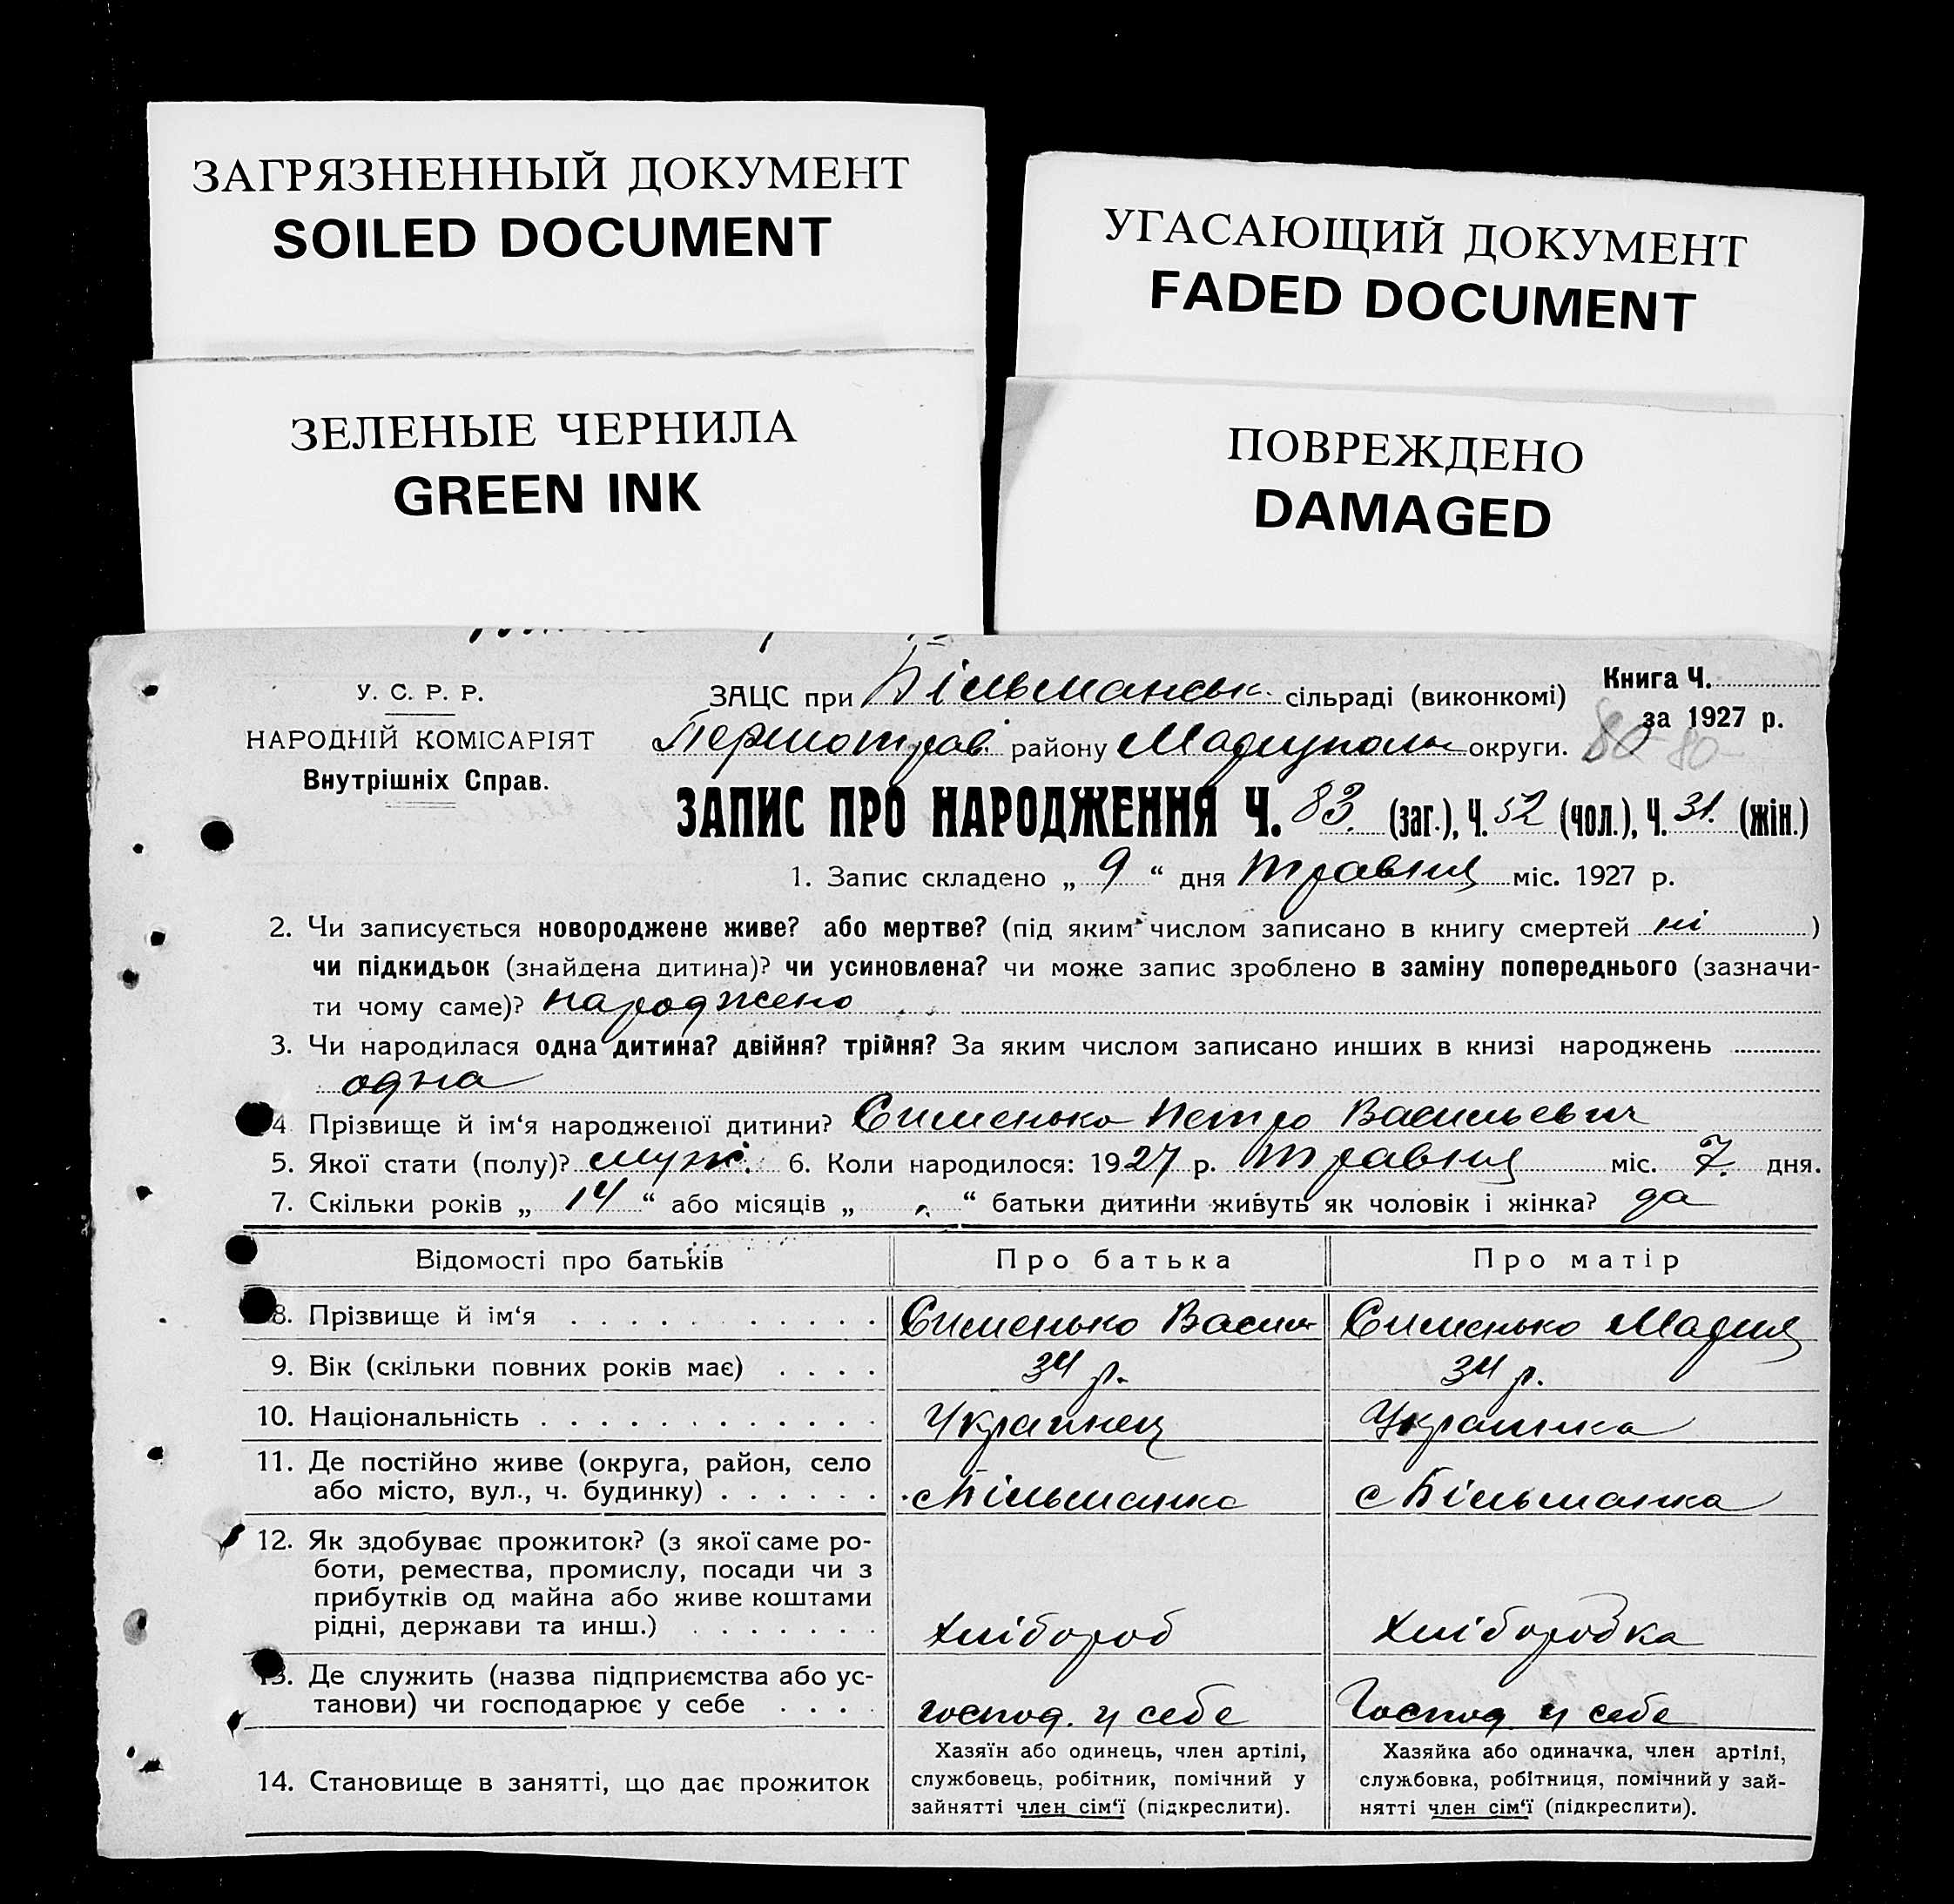 ЗАГРЯЗНЕННЫЙ ДОКУМЕНТ
SOILED DOCUMENT
УГАСАЮЩИЙ ДОКУМЕНТ
FADED DOCUMENT
ЗЕЛЕНЫЕ ЧЕРНИЛА
GREEN INK
ПОВРЕЖДЕНО
DAMAGED
У. С. Р. Р.
НАРОДНІЙ КОМІСАРІЯТ
Внутрішніх Справ.
ЗАЦС при Більманськ. сільраді (виконкомі)
Книга Ч.
за 1927 р.
Першотрав. району Маріупольськ округи. 80 80
ЗАПИС ПРО НАРОДЖЕННЯ Ч. 83. (заг.), Ч. 52 (чол.), Ч. 31. (жін.)
1. Запис складено „ 9 “ дня травня міс. 1927 р.
2. Чи записується новороджене живе? або мертве? (під яким числом записано в книгу смертей ні )
чи підкидьок (знайдена дитина)? чи усиновлена? чи може запис зроблено в заміну попереднього (зазначи-
ти чому саме)? народжено
3. Чи народилася одна дитина? двійня? трійня? За яким числом записано инших в книзі народжень
одна
4. Прізвище й ім‘я народженої дитини? Сименько Петро Васильевич
5. Якої стати (полу)? муж. 6. Коли народилося: 1927 р. травня міс. 7. дня.
7. Скільки років „ 14 “ або місяців „ “ батьки дитини живуть як чоловік і жінка? да
Відомості про батьків Про батька Про матір
8. Прізвище й ім‘я Сименько Васил Сименько Мария
9. Вік (скільки повних років має) 34 р. 34 р.
10. Національність Украинец Украинка
11. Де постійно живе (округа, район, село
або місто, вул., ч. будинку) с Більманка с Більманка
12. Як здобуває прожиток? (з якої саме ро-
боти, ремества, промислу, посади чи з
прибутків од майна або живе коштами
рідні, держави та инш.) хлібороб хліборобка
13. Де служить (назва підприємства або ус-
танови) чи господарює у себе господ. у себе Господ у себе
14. Становище в занятті, що дає прожиток
Хазяїн або одинець, член артілі,
службовець, робітник, помічний у
зайнятті член сім‘ї (підкреслити).
Хазяйка або одиначка, член артілі,
службовка, робітниця, помічний у зай-
нятті член сім‘ї (підкреслити).